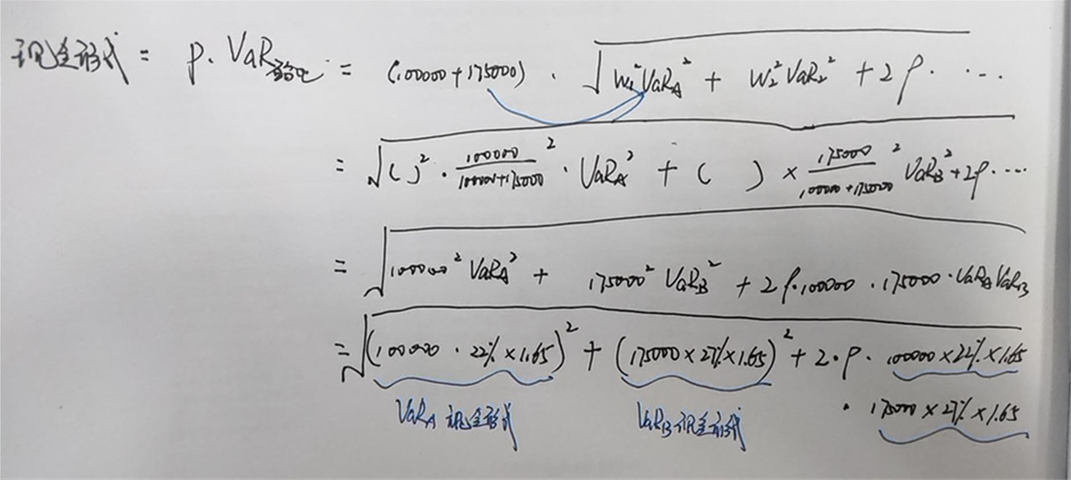 现金形式 = P · VaR组合 = (100000+175000) · √(W₁²VaR_A² + W₂²VaR₂² + 2ρ · ···
= √(( )² · 100000/(100000+175000)² · VaR_A² + ( ) × 175000/(100000+175000)² VaR_B² + 2ρ · ···
= √(100000² VaR_A² + 175000² VaR_B² + 2ρ·100000 · 175000 · VaR_A VaR_B
= √((100000 · 22% × 1.65)² + (175000 × 27% × 1.65)² + 2·ρ · 100000 × 22% × 1.65
· 175000 × 27% × 1.65
VaR_A 现金形式 VaR_B 现金形式